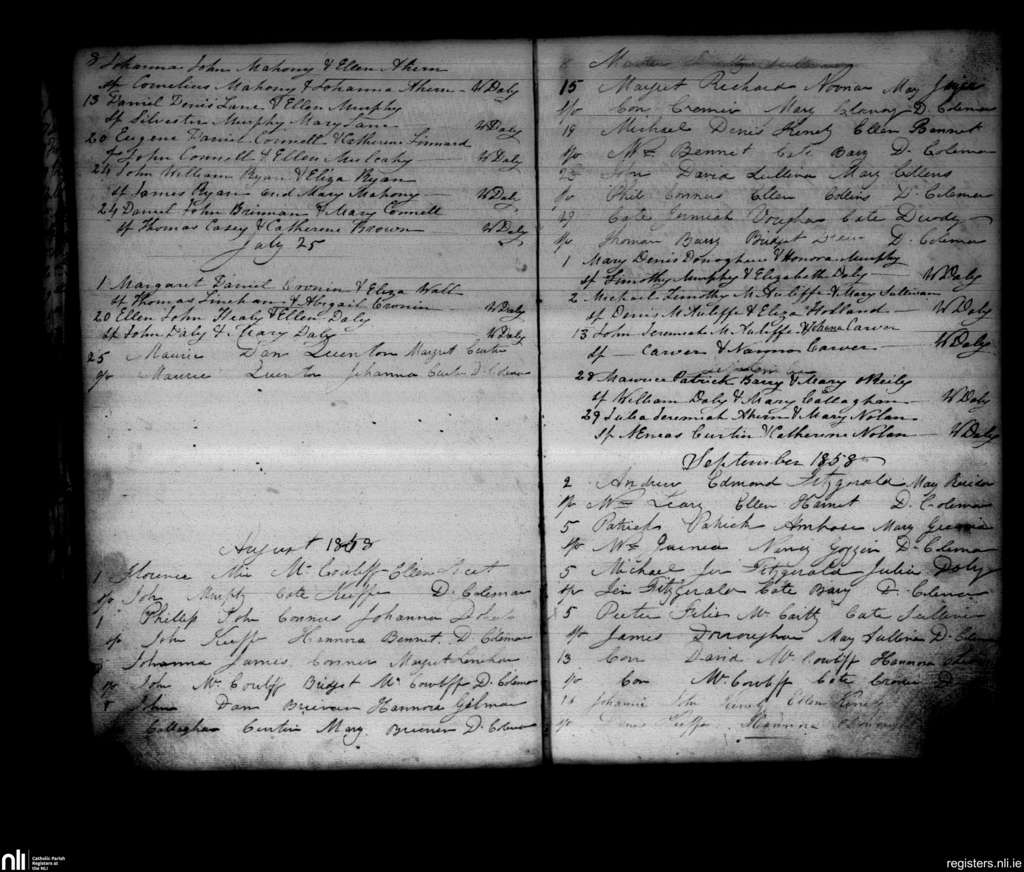 8 Johanna John Mahony & Ellen Ahern
sp Cornelius Mahony & Johanna Ahern - W Daly
13 Daniel Denis Lane & Ellen Murphy
sp Silvester Murphy Mary Lane W Daly
20 Eugene Daniel Connell & Catherine Linnard
sp John Connell & Ellen W Daly
24 John William Ryan & Eliza Ryan
sp James Ryan and Mary Mahony - W Daly
24 Daniel John Brinnan & Mary Connell
sp Thomas Casey & Catherine Brown W Daly
July 25
1 Margaret Daniel Cronin & Eliza Wall
sp Thomas Linehan & Abigail Cronin - W Daly
20 Ellen John Healy & Ellen Daly
sp John Daly & Leary Daly - W Daly
25 Maurice Dan Quenton Margret Curtin
sp Maurice Quenton Johanna Curtin D. Coleman
August 1858
1 Florence Mic McCowliff Ellen
sp John Murphy Cate Keeffe D. Coleman
1 Philip John Connus Johanna
sp John Keeff Hannora Bennet D. Coleman
Johanna James Conner Margret Lenehan
sp John McCowliff Bridget McCowliff D. Coleman
John Dan Brienen Hannora Gilman
Callaghan Curtin Mary Brienen D. Coleman
15 Margret Richard Noonan Mary Joyce
sp Con Cremin Mary D. Coleman
19 Michael Denis Kenely Ellen Bennet
sp Wm Bennet Cate Barry D. Coleman
David Sullivan Mary Collens
sp Phil Connus Ellen Collens D. Coleman
29 Cate Jermiah Voughan Cate
sp Thomas Barry Bridget D. Coleman
1 Mary Denis Donoghue & Honora Murphy
sp Timothy Murphy & Elizabeth Daly - W Daly
2 Michael Timothy McAuliffe & Mary Sullivan
sp Denis McAuliffe & Eliza Holland - W Daly
13 John Jeremiah McAuliffe & Carver
sp - Carver & Carver - W Daly
28 Maurice Patrick Barry & Mary OReily
sp William Daly & Mary Callaghan - W Daly
29 Julia Jeremiah Ahern & Mary Nolan
sp Neneas Curtin & Catherine Nolan - W Daly
September 1858
2 Andrew Edmond Fitzgerald Mary
sp Wm Leary Ellen Harnet D. Coleman
5 Patrick Patrick Ambrose Mary
sp Wm Nancy Goggin D. Coleman
5 Michael Jer Fitzgerald Julia Daly
sp Jer Fitzgerald Cate Barry D. Coleman
5 Peeter McCarthy Cate Sullivan
sp James Donoughue Mary Sullivan D. Coleman
13 Con David McCowliff Hannora
sp Con McCowliff Cate Cronin D.
Johanna John Kenely Ellen Kenely
sp Denis Keeffe Hannora
nli
Catholic Parish
Registers at
the NLI
registers.nli.ie